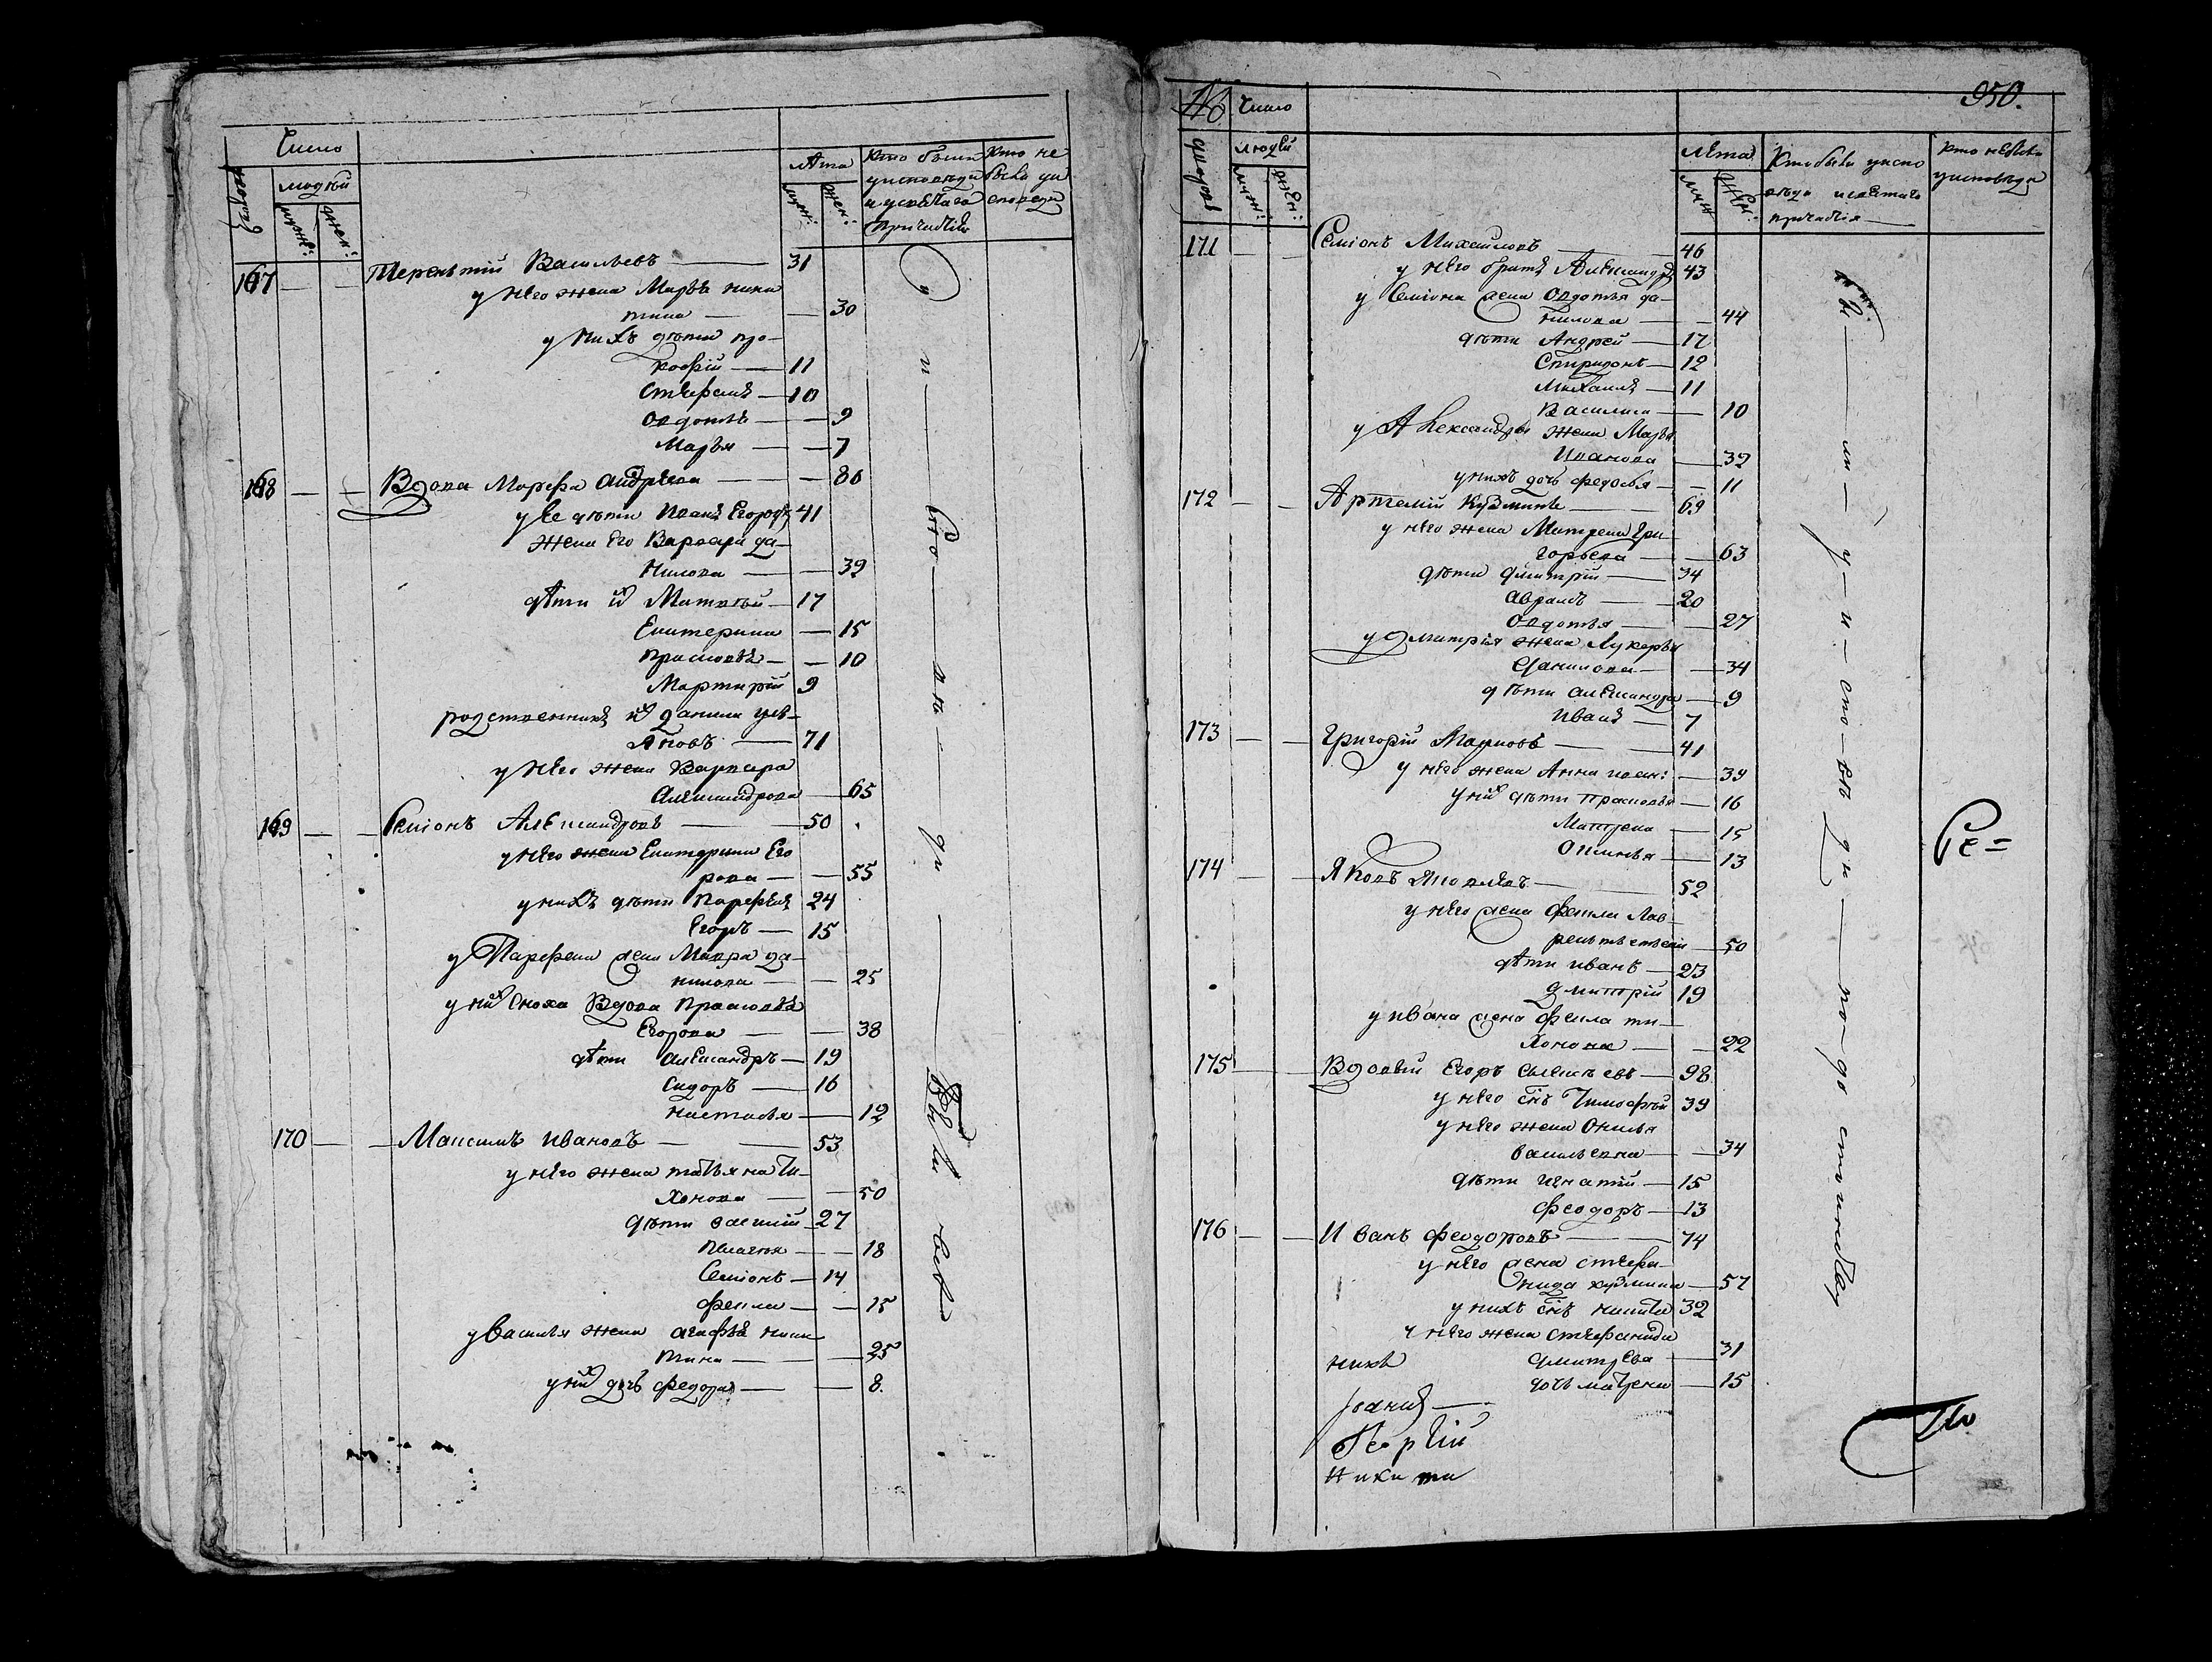 Число
людѣй
дворовъ
муж:
жен:
Лѣта
муж:
жен:
Кто были
у исповѣди
и у святаго
причастія
Кто не
были у и
споведи
167 Терентій Васильевъ 31
у него жена Марья ники
тина 30
у нихъ дѣти про-
кофій 11
Стефанъ 10
Овдотья 9
Марья 7
168 Вдова Марфа Андрѣева 80
у ее дѣти Иванъ Егоровъ 41
жена Его Варвара да-
нилова 32
дѣти их Матвѣй 17
Екатерина 15
Прасковья 10
Мартирій 9
родственникъ их Данила улъ-
яновъ 71
у него жена Варвара
Александрова 65
169 Семіонъ Александровъ 50
у него жена Екатерина Его
рова 55
у нихъ дѣти Парфенъ 24
Егоръ 15
у Парфена жена Мавра да-
нилова 25
у них сноха Вдова Прасковья
Егорова 38
дѣти Александръ 19
Сидоръ 16
Настасья 12
170 Максимъ Ивановъ 53
у него жена татьяна ти-
хонова 50
дѣти василій 27
Пелагея 18
Семіонъ 14
Фекла 15
у Василья жена агафья ники
тина 25
у них дочь федора 8.
950.
Число
людей
дворовъ
муж:
жен:
Лѣта
муж
жен:
Кто были у испо
вѣди и святаго
причастія
Кто не были
у исповѣди
171 Семіонъ Михайловъ 46
у него братъ Александръ 43
у Семіона жена Овдотья да-
нилова 44
дѣти Андрей 17
Спиридонъ 12
Михаилъ 11
Василиса 10
у Александра жена Марья
Иванова 32
у нихъ дочь федосья 11
172 Артемій Кузминъ 69
у него жена Матрена Гри
горьева 63
дѣти Димитрій 34
Аврамъ 20
Овдотья 27
у Дмитрія жена Лукерья
Данилова 34
дѣти александра 9
Иванъ 7
173 Григорій Марковъ 41
у него жена Анна иван: 39
у них дѣти Прасковья 16
Матрена 15
Оксинья 13
174 Яковъ Яковлевъ 52
у него жена Фекла Лав-
рентьевна 50
дѣти иванъ 23
Дмитрій 19
у ивана жена Фекла ти-
хонова 22
175 Вдовый Егоръ 98
у него снъ Тимофѣй 39
у него жена
васильевна 34
дѣти игнатій 15
Феодоръ 13
176 Иванъ Феодоровъ 74
у него жена стефа-
нида кузмина 57
у нихъ снъ никита 32
у него жена стефанида
нихъ дмитрева 31
дочь матрена 15
Иоанъ
Георгій
Никита